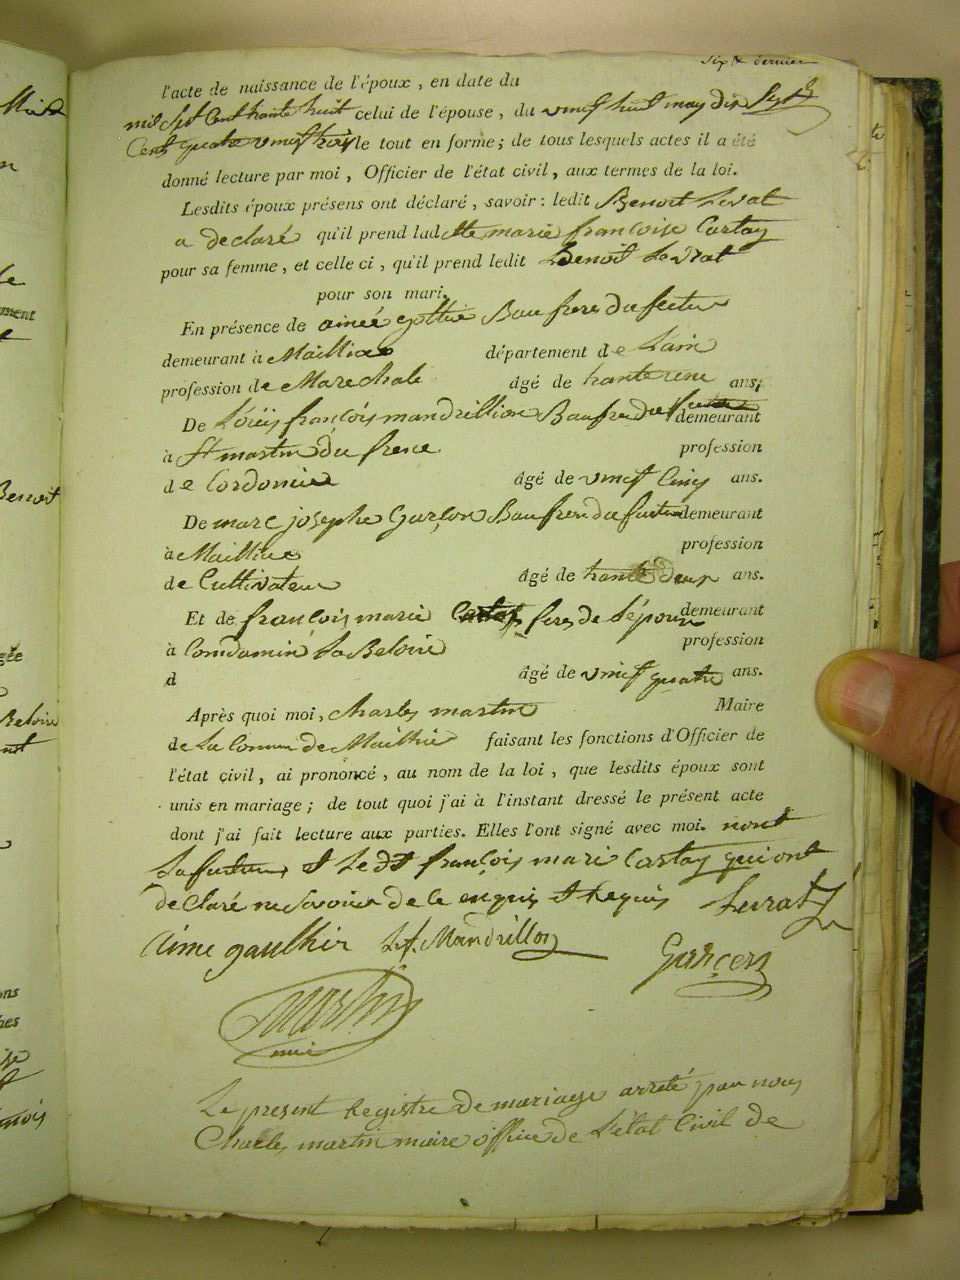 six dernier
l'acte de naissance de l'époux, en date du
mil Sept Cent trante huit celui de l'épouse, du vingt huit may dix Sept
Cent quatre vingt trois le tout en forme; de tous lesquels actes il a été
donné lecture par moi, Officier de l'état civil, aux termes de la loi.
Lesdits époux présens ont déclaré, savoir: ledit Benoit Levrat
a declaré qu'il prend ladtte marie françoise Cartay
pour sa femme, et celle ci, qu'il prend ledit Benoit Levrat
pour son mari.
En présence de aimée gottie Beau frere du futur
demeurant à Maillia département de Lain
profession de Marechale âgé de trante une ans;
De Loüis françois mandrillion Beau frere du futur demeurant
à St martin du frene profession
de Cordonnie âgé de vingt Cinq ans.
De marc josephe Garçon Beau frere du futur demeurant
à Maillia profession
de Cultivateur âgé de trante deux ans.
Et de françois marie Cartay frere de Lépouse demeurant
à Condamine La Beloire profession
d âgé de vingt quatre ans.
Après quoi moi, charles martin Maire
de La Commune de Maillia faisant les fonctions d'Officier de
l'état civil, ai prononcé, au nom de la loi, que lesdits époux sont
unis en mariage; de tout quoi j'ai à l'instant dressé le présent acte
dont j'ai fait lecture aux parties. Elles l'ont signé avec moi. nont
La future et Ledt françois marie Cartay qui ont
declaré ne Savoir de ce enquis et requis Levrat
aime gauthier L f. Mandrillon
Garçon
Martin
maire
Le present Registre de mariage arrêté par nous
Charles martin maire officier de L'état Civil de